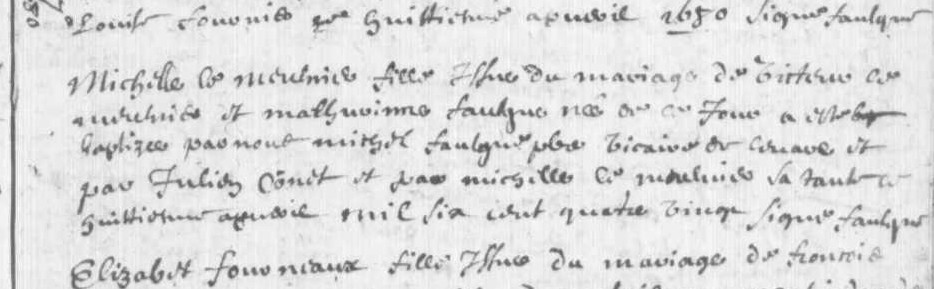 Louise fournier ce huittiesme apvril 1680 signe faulque
Michelle le meulnier fille Issue du mariage de victeur le
meulnier et mathurinne faulque née de ce Jour a esté
baptizee par nous michel faulque pbre vicaire de et
par Julien Conet et par michelle le meulnier sa tante le
huittiesme apvril mil six cent quatre vingt signe faulque
Elizabet fourneaux fille Issue du mariage de francois